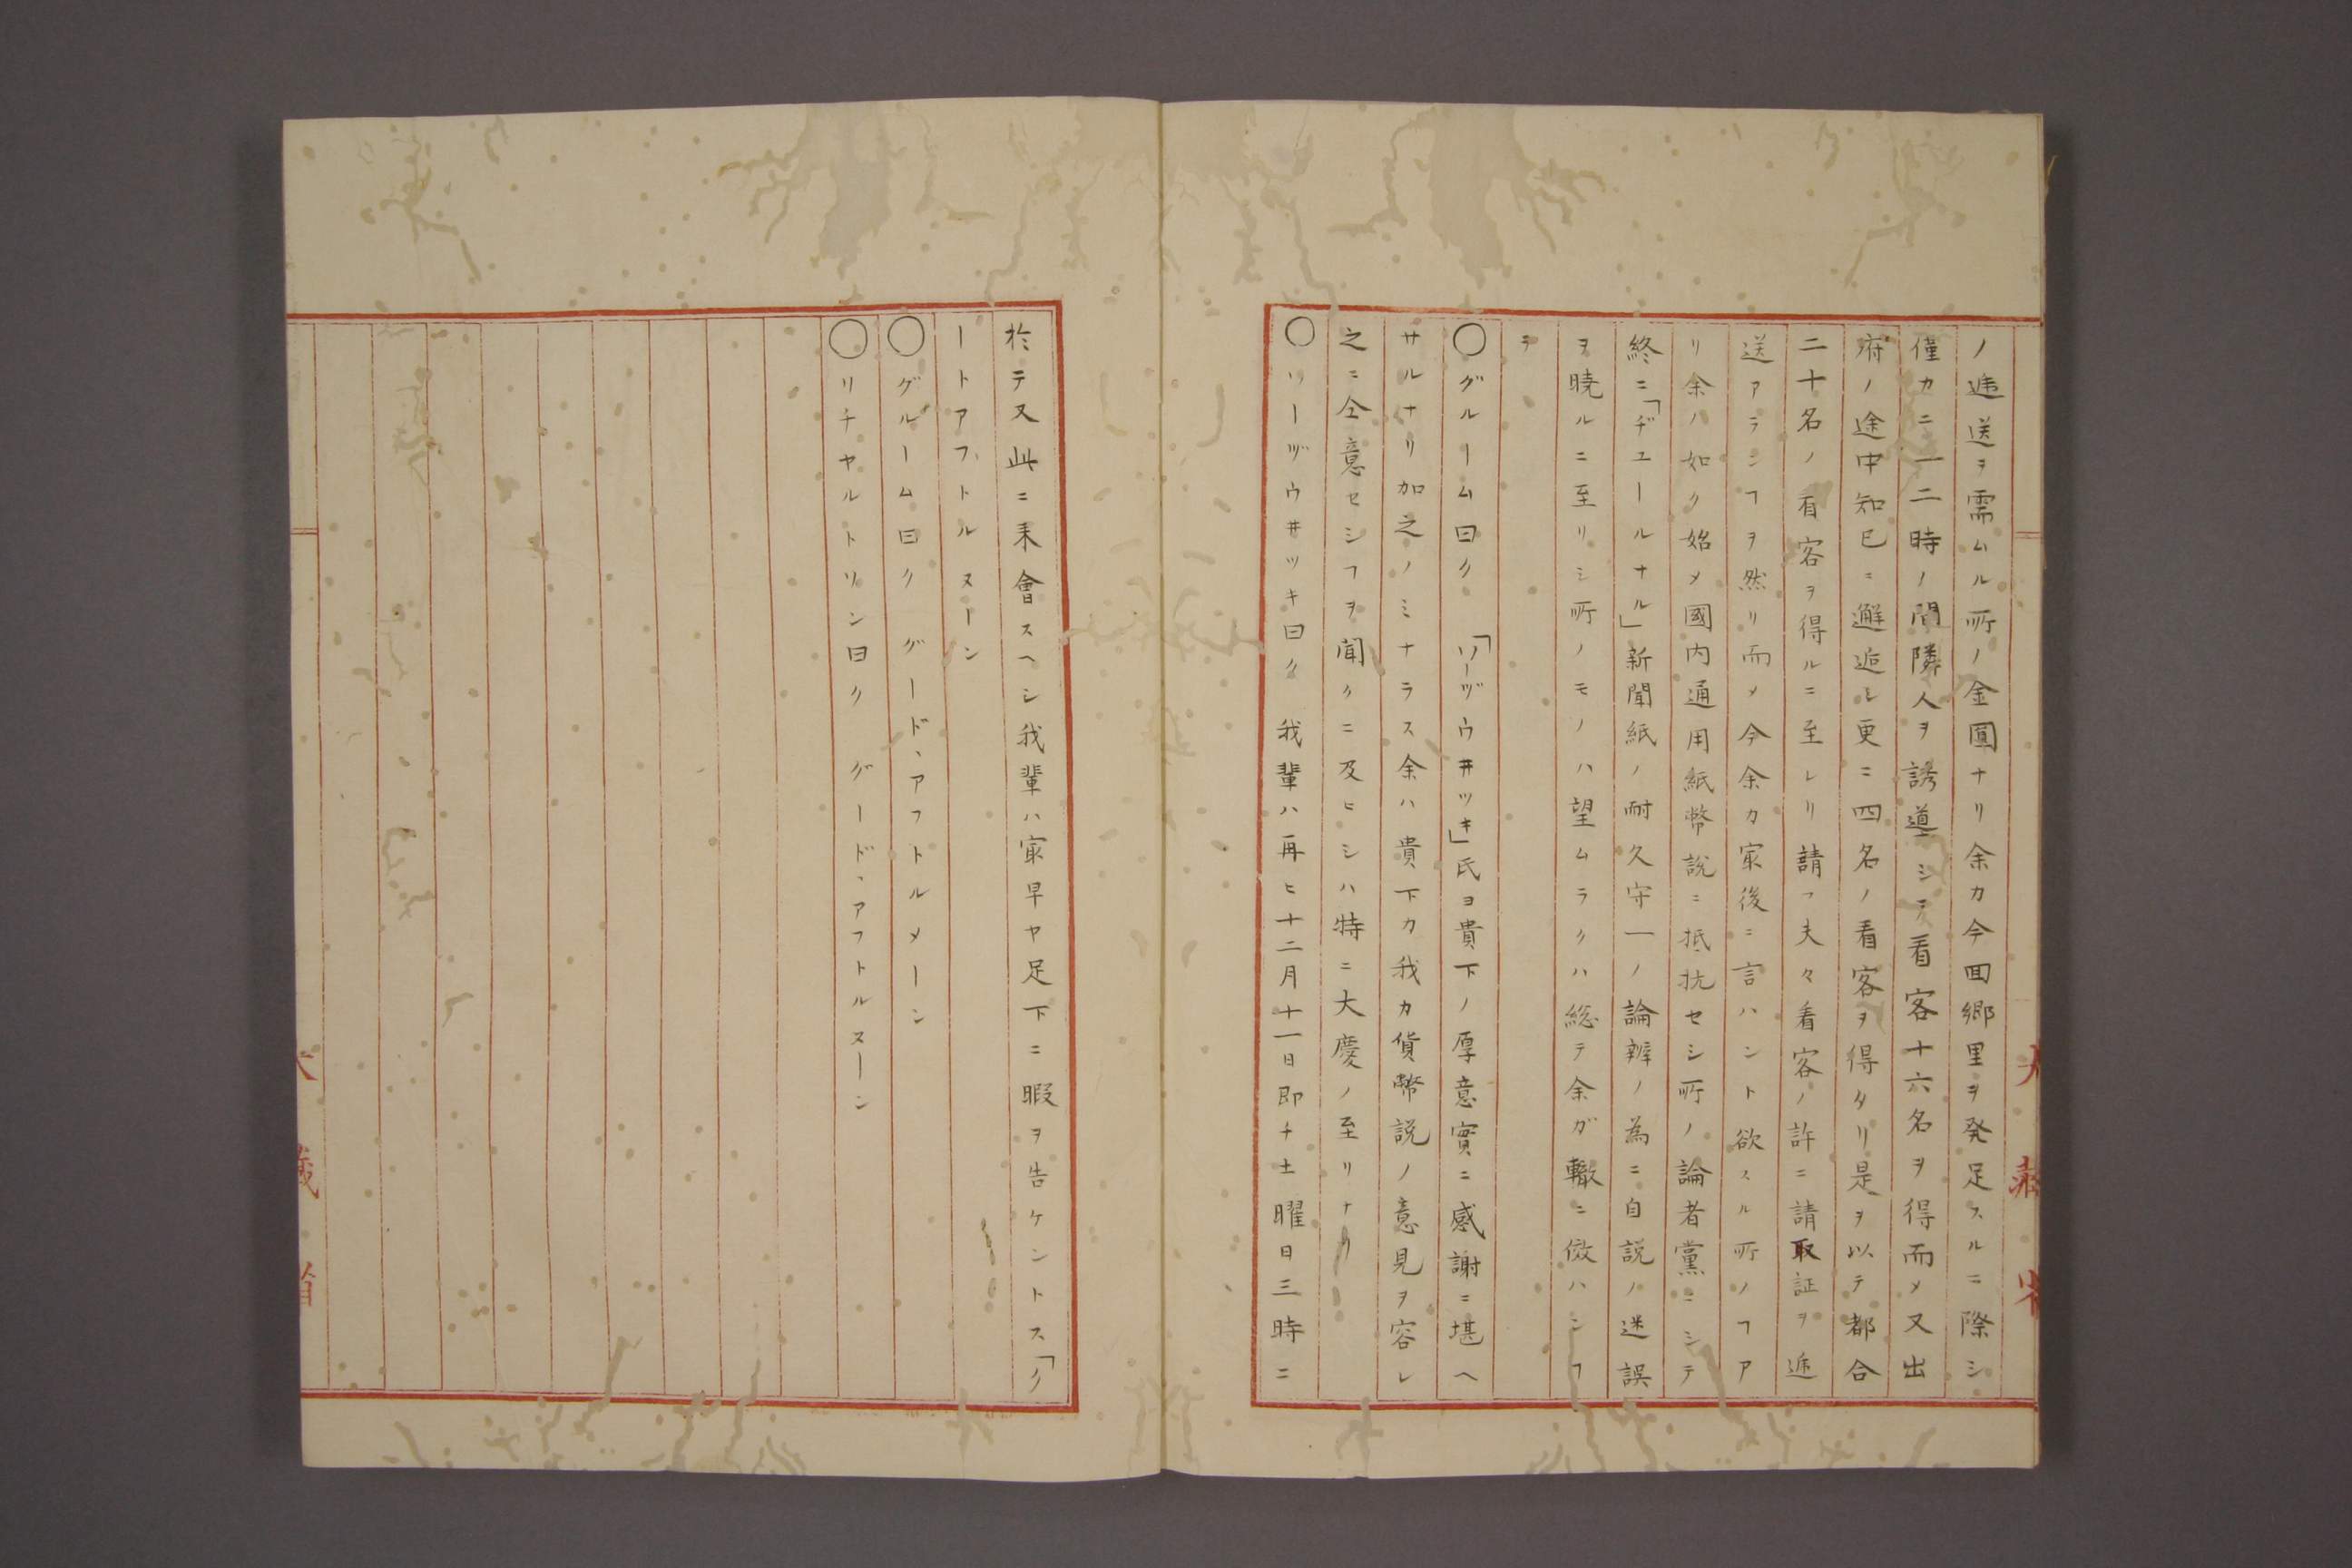 ノ逓送ヲ需ムル所ノ金圓ナリ余カ今回郷里ヲ発足スルニ際シ
僅カニ一二時ノ間隣人ヲ誘導シテ看客十六名ヲ得而メ又出
府ノ途中知已ニ邂逅シ更ニ四名ノ看客ヲ得タリ是ヲ以テ都合
二十名ノ看客ヲ得ルニ至レリ請フ夫々看客ノ許ニ請取証ヲ逓
送アランヿヲ然リ而メ今余カ家後ニ言ハント欲スル所ノヿア
リ余ハ如ク始メ國内通用紙幣説ニ抵抗セシ所ノ論者黨ニシテ
終ニ「ヂユールナル」新聞紙ノ耐久守一ノ論辨ノ為ニ自説ノ迷誤
ヲ曉ルニ至リシ所ノモノハ望ムラクハ総テ余ガ轍ニ傚ハンヿ
ヲ
〇グルーム曰ク 「ソーヅウ井ツキ」氏ヨ貴下ノ厚意實ニ感謝ニ堪ヘ
サルナリ加之ノミナラス余ハ貴下カ我カ貨幣説ノ意見ヲ容レ
之ニ仝意セシヿヲ聞クニ及ヒシハ特ニ大慶ノ至リナリ
〇ソーヅウ井ツキ曰ク 我輩ハ再ヒ十二月十一日即チ土曜日三時ニ
於テ又此ニ来會スヘシ我輩ハ家早ヤ足下ニ暇ヲ告ケントス「グ
ートアフトルヌーン
〇グルーム曰ク グード、アフトルメーン
〇リチヤルトソン曰ク グード、アフトルヌーン
大蔵省